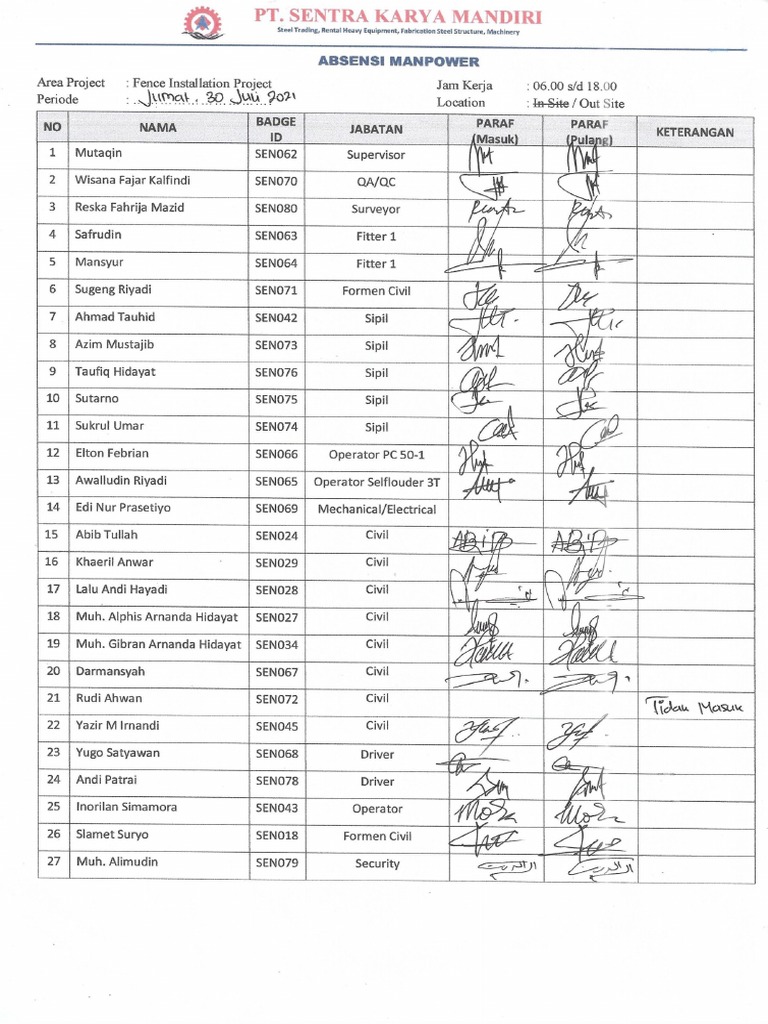 PT. SENTRA KARYA MANDIRI
Steel Trading, Rental Heavy Equipment, Fabrication Steel Structure, Machinery
ABSENSI MANPOWER
Area Project : Fence Installation Project Jam Kerja : 06.00 s/d 18.00
Periode : Jumat, 30 Juli 2021 Location : In Site / Out Site
NO NAMA BADGE ID JABATAN PARAF (Masuk) PARAF (Pulang) KETERANGAN
1 Mutaqin SEN062 Supervisor
2 Wisana Fajar Kalfindi SEN070 QA/QC
3 Reska Fahrija Mazid SEN080 Surveyor
4 Safrudin SEN063 Fitter 1
5 Mansyur SEN064 Fitter 1
6 Sugeng Riyadi SEN071 Formen Civil
7 Ahmad Tauhid SEN042 Sipil
8 Azim Mustajib SEN073 Sipil
9 Taufiq Hidayat SEN076 Sipil
10 Sutarno SEN075 Sipil
11 Sukrul Umar SEN074 Sipil
12 Elton Febrian SEN066 Operator PC 50-1
13 Awalludin Riyadi SEN065 Operator Selflouder 3T
14 Edi Nur Prasetiyo SEN069 Mechanical/Electrical
15 Abib Tullah SEN024 Civil
16 Khaeril Anwar SEN029 Civil
17 Lalu Andi Hayadi SEN028 Civil
18 Muh. Alphis Arnanda Hidayat SEN027 Civil
19 Muh. Gibran Arnanda Hidayat SEN034 Civil
20 Darmansyah SEN067 Civil
21 Rudi Ahwan SEN072 Civil Tidak Masuk
22 Yazir M Irnandi SEN045 Civil
23 Yugo Satyawan SEN068 Driver
24 Andi Patrai SEN078 Driver
25 Inorilan Simamora SEN043 Operator
26 Slamet Suryo SEN018 Formen Civil
27 Muh. Alimudin SEN079 Security